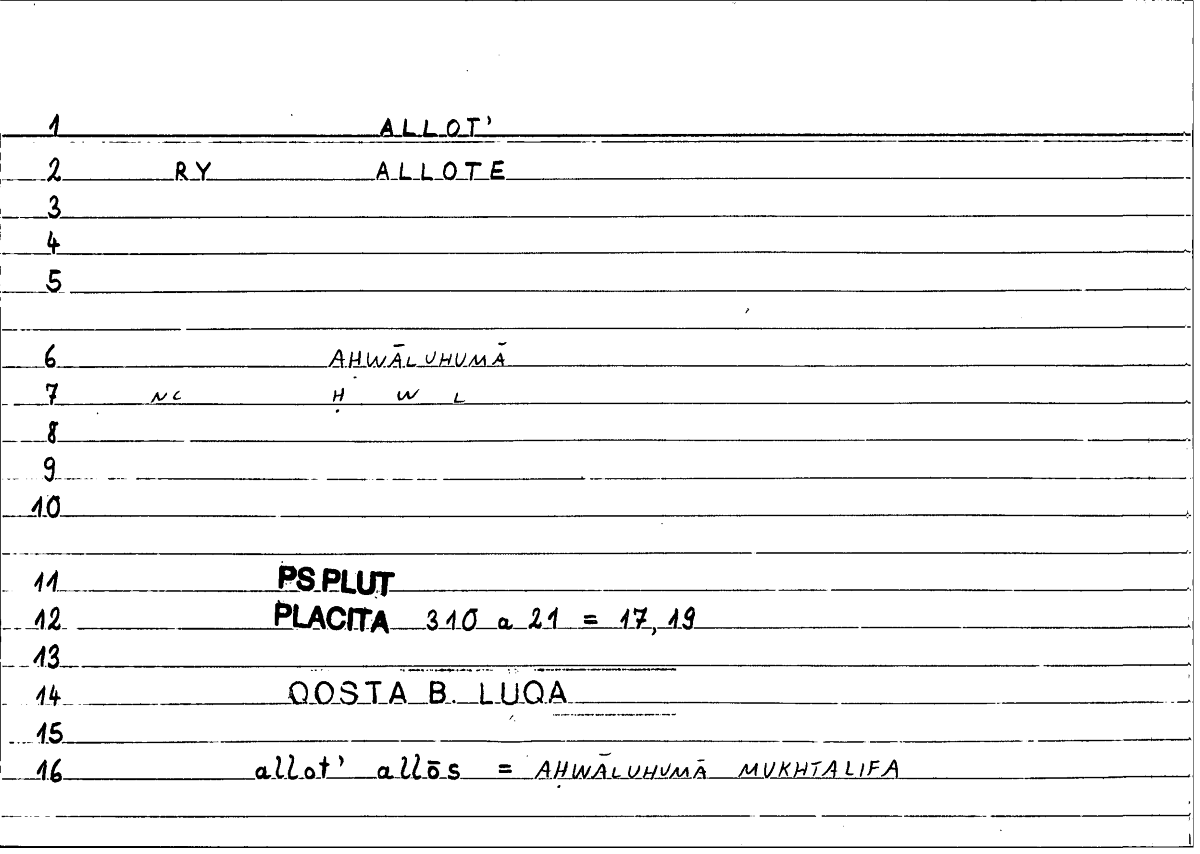 1 ALLOT'
2 RY ALLOTE
3
4
5
6 AḤWĀLUHUMĀ
7 NC Ḥ W L
8
9
10
11 PS PLUT
12 PLACITA 310 a 21 = 17,19
13
14 QOSTA B. LUQA
15
16 allot' allōs = AḤWĀLUHUMĀ MUKHTALIFA